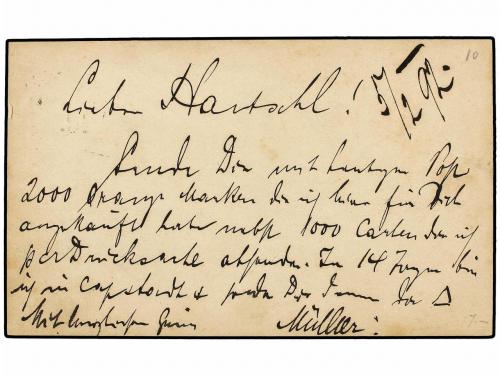 Lieber Hartschl! 5/2 92.
10
Sende Dir mit heutiger Post
2000 orange Marken die ich hier für Dich
angekauft habe nebst 1000 Carten die ich
per Drucksache absende. In 14 Tagen bin
ich in Capstadt & sende Dir dann die Δ
Mit herzlichem Gruss Müller.
7.-